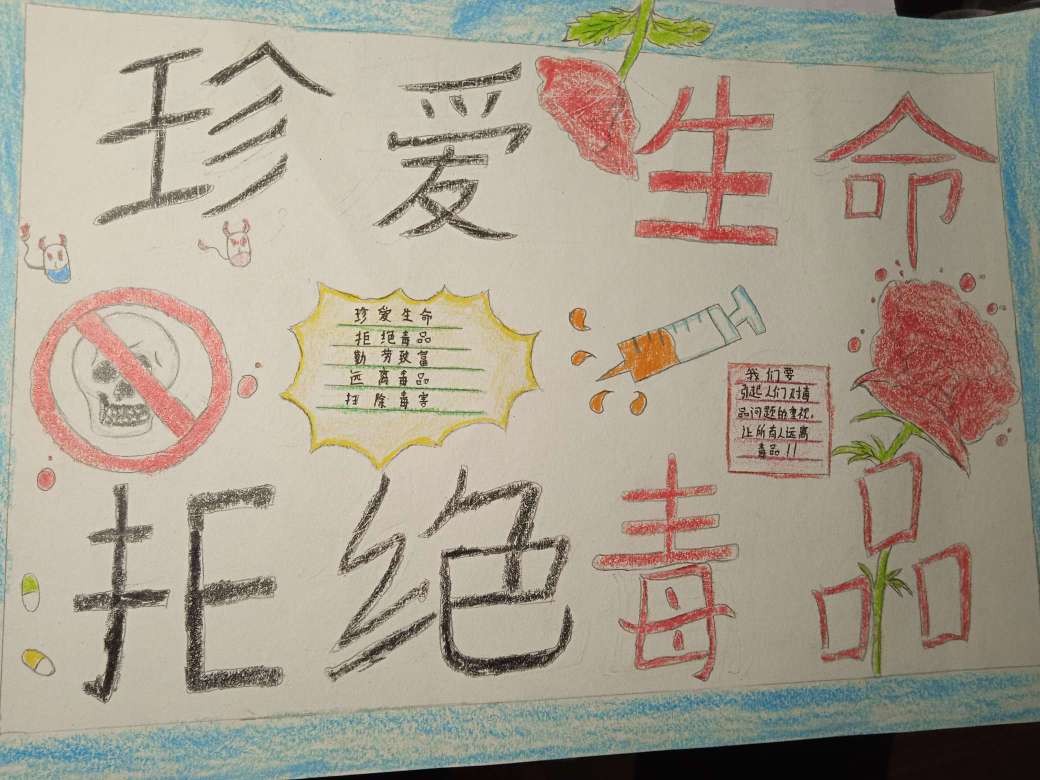 珍爱生命
珍爱生命
拒绝毒品
勤劳致富
远离毒品
扫除毒害
我们要
引起人们对毒
品问题的重视。
让所有人远离
毒品！！
拒绝毒品